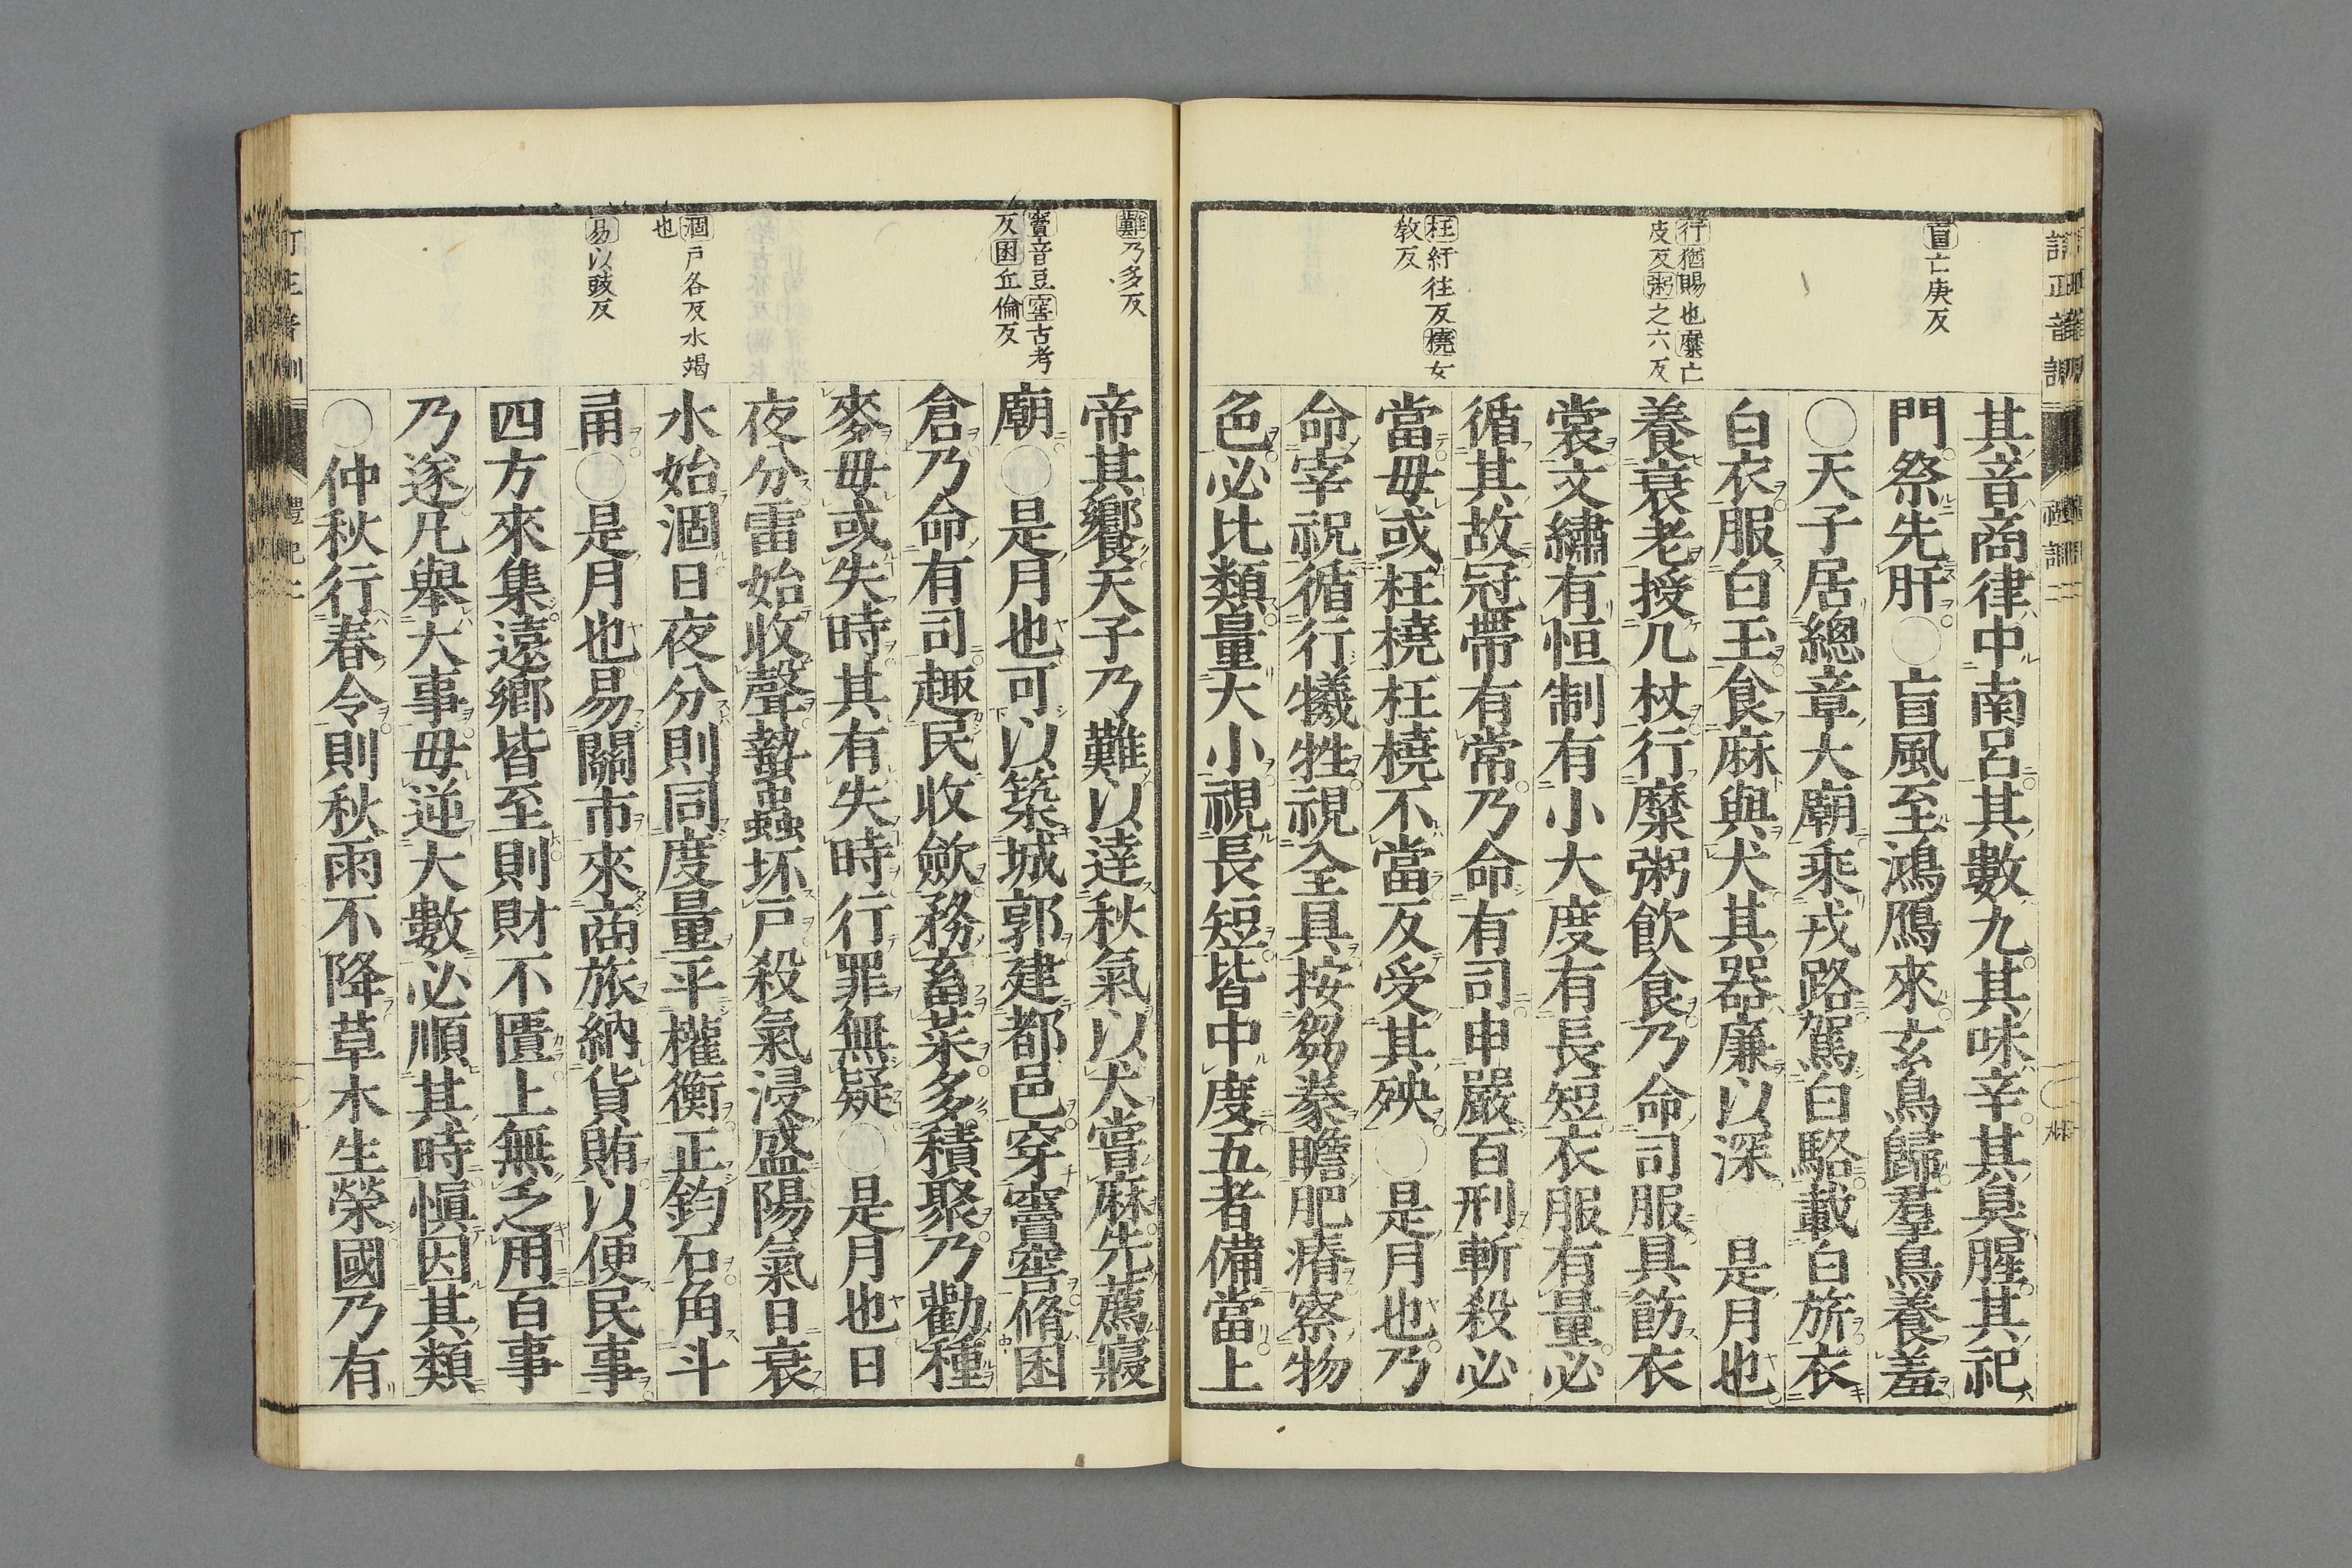 盲亡庚反
行猶賜也糜亡
皮反粥之六反
枉紆往反橈女
敎反
其音商律中南呂其數九其味辛其臭腥其祀
門祭先肝○盲風至鴻鴈來玄鳥歸羣鳥養羞
○天子居總章大廟乘戎路駕白駱載白旂衣
白衣服白玉食麻與犬其器廉以深○是月也
養衰老授几杖行糜粥飮食乃命司服具飭衣
裳文繡有恒制有小大度有長短衣服有量必
循其故冠帶有常乃命有司申嚴百刑斬殺必
當毋或枉橈枉橈不當反受其殃○是月也乃
命宰祝循行犧牲視全具按芻豢瞻肥瘠察物
色必比類量大小視長短皆中度五者備當上
難乃多反
竇音豆窖古考
反囷丘倫反
涸戸各反水竭
也
易以豉反
帝其饗天子乃難以達秋氣以犬嘗麻先薦寢
廟○是月也可以築城郭建都邑穿竇窖脩囷
倉乃命有司趣民收斂務畜菜多積聚乃勸種
麥毋或失時其有失時行罪無疑○是月也日
夜分雷始收聲蟄蟲坏戸殺氣浸盛陽氣日衰
水始涸日夜分則同度量平權衡正鈞石角斗
甬○是月也易關市來商旅納貨賄以便民事
四方來集遠鄉皆至則財不匱上無乏用百事
乃遂凡舉大事毋逆大數必順其時愼因其類
○仲秋行春令則秋雨不降草木生榮國乃有